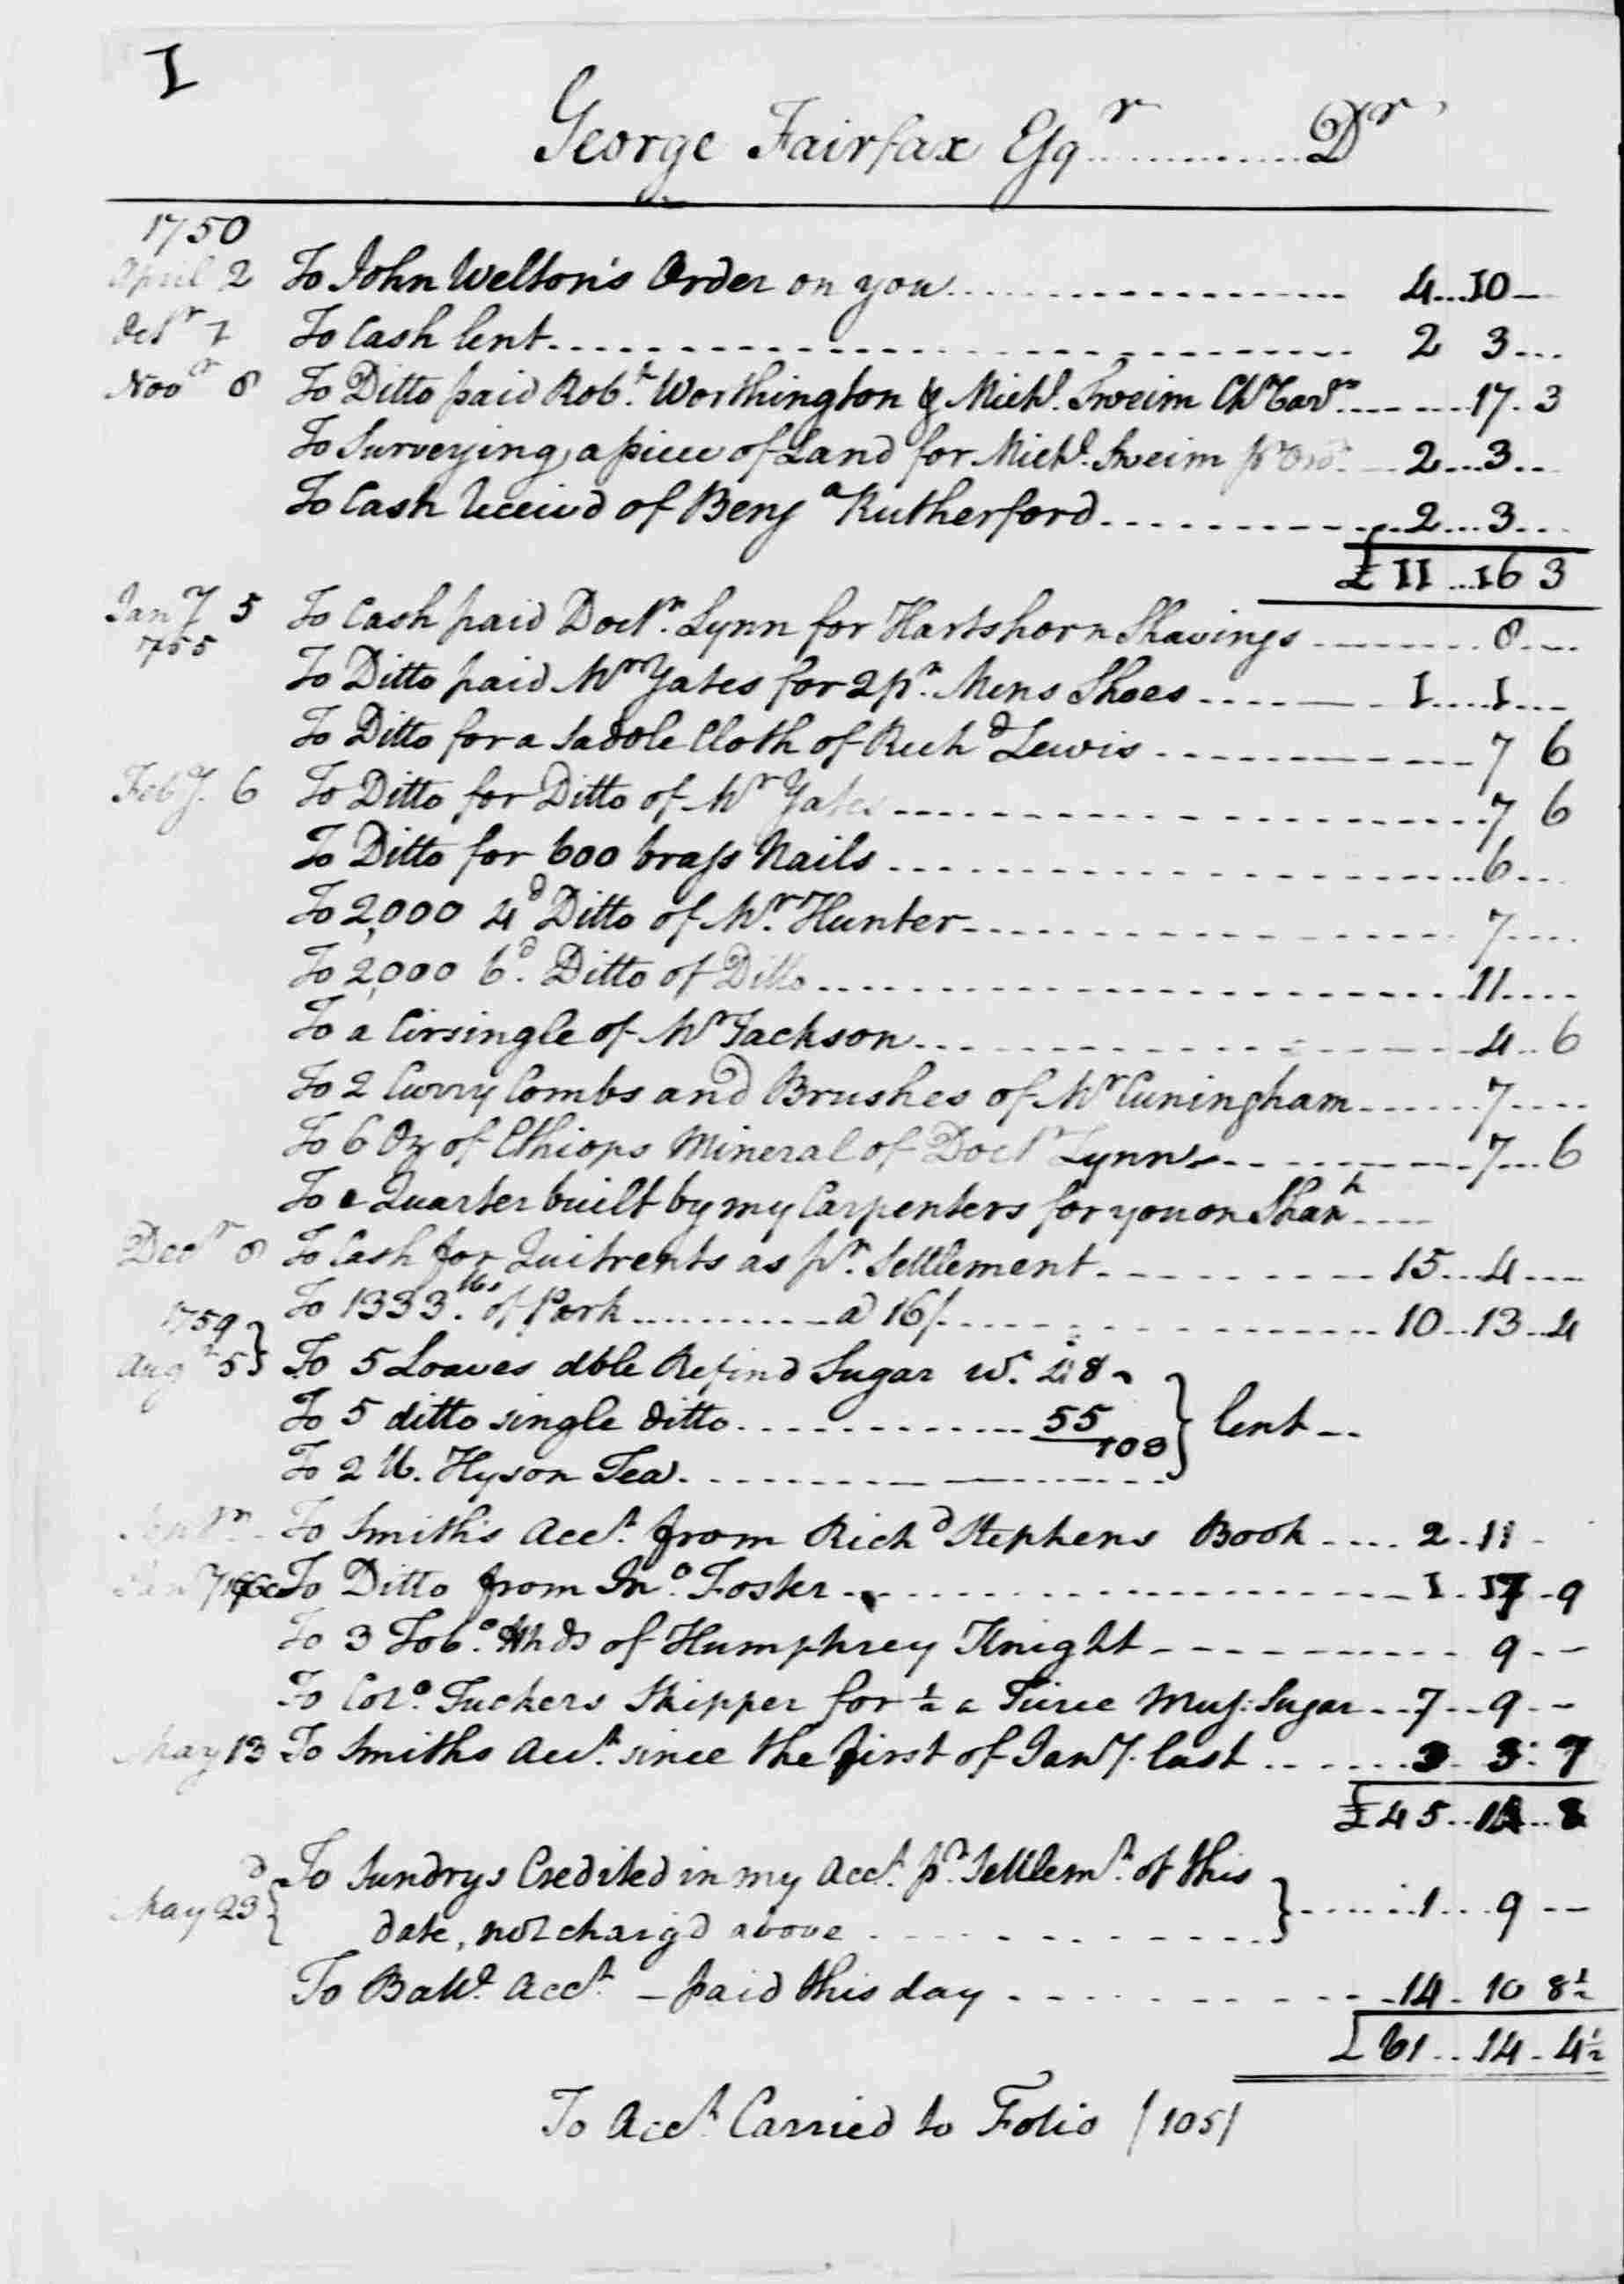 I
George Fairfax Esqr ............ Dr
1750
April 2 To John Welton's Order on you 4 .. 10 —
Octr 7 To Cash lent 2 3
Novr 8 To Ditto paid Robt. Worthington & Michl. Sweim 17 . 3
To Surveying a piece of Land for Michl. Sweim pr Ordr. 2 .. 3
To Cash Receivd of Benja Rutherford 2 .. 3
£ 11 .. 16 3
Jany 5 To Cash paid Doctr. Lynn for Hartshorn Shavings 8
1755
To Ditto paid Mr Yates for 2 pr. Mens Shoes 1 .. 1
To Ditto for a Saddle Cloth of Richd Lewis 7 6
Feby. 6 To Ditto for Ditto of Mr Yates 7 6
To Ditto for 600 brass Nails 6
To 2,000 4d Ditto of Mr. Hunter 7
To 2,000 6d. Ditto of Ditto 11
To a Cirsingle of Mr Jackson 4 .. 6
To 2 Curry Combs and Brushes of Mr Cuningham 7
To 6 Oz of Ethiops Mineral of Doctr Lynn 7 .. 6
To a Quarter built by my Carpenters for you on Shanh
Decr 8 To Cash for Quitrents as pr. Settlement 15 .. 4
To 1333 lbs. of Pork a 16/ 10 .. 13 .. 4
1759
Augt 5 } To 5 Loaves dble Refind Sugar wt. 48
To 5 ditto single ditto 55 } lent
103
To 2 lb. Hyson Tea
To Smith's Acct. from Richd Stephens Book 2 . 11
Jany 1760 To Ditto from Jno. Foster 1 . 17 . 9
To 3 Tobo. Hhds of Humphrey Knight 9
To Colo. Tuckers Skipper for ½ a Tierce Mus: Sugar 7 .. 9
May 13 To Smiths Acct. since the first of Jany. last 3 3 : 7
£ 45 .. 8
May 23d { To Sundrys Credited in my Acct. pr. Settlemt. of this
date, not chargd above } 1 .. 9
To Balle. Acct — paid this day 14 . 10 8½
£ 61 .. 14 . 4½
To Acct. Carried to Folio /105/